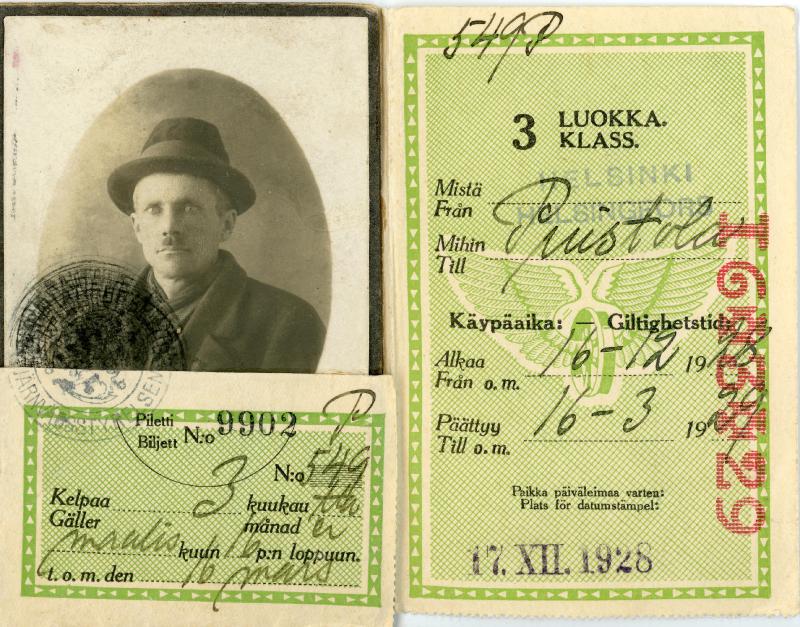 Piletti
Biljett N:o 9902
P
N:o 549
Kelpaa 3 kuukautta
Gäller månader
maalis kuun 16 p:n loppuun.
t. o. m. den 16 mars
549 P
3 LUOKKA.
KLASS.
HELSINKI
Mistä
Från HELSINGFORS
Mihin Puistola
Till
Käypäaika: — Giltighetstid:
Alkaa 16-12 1928
Från o. m.
Päättyy 16-3 1929
Till o. m.
Paikka päiväleimaa varten:
Plats för datumstämpel:
17. XII. 1928